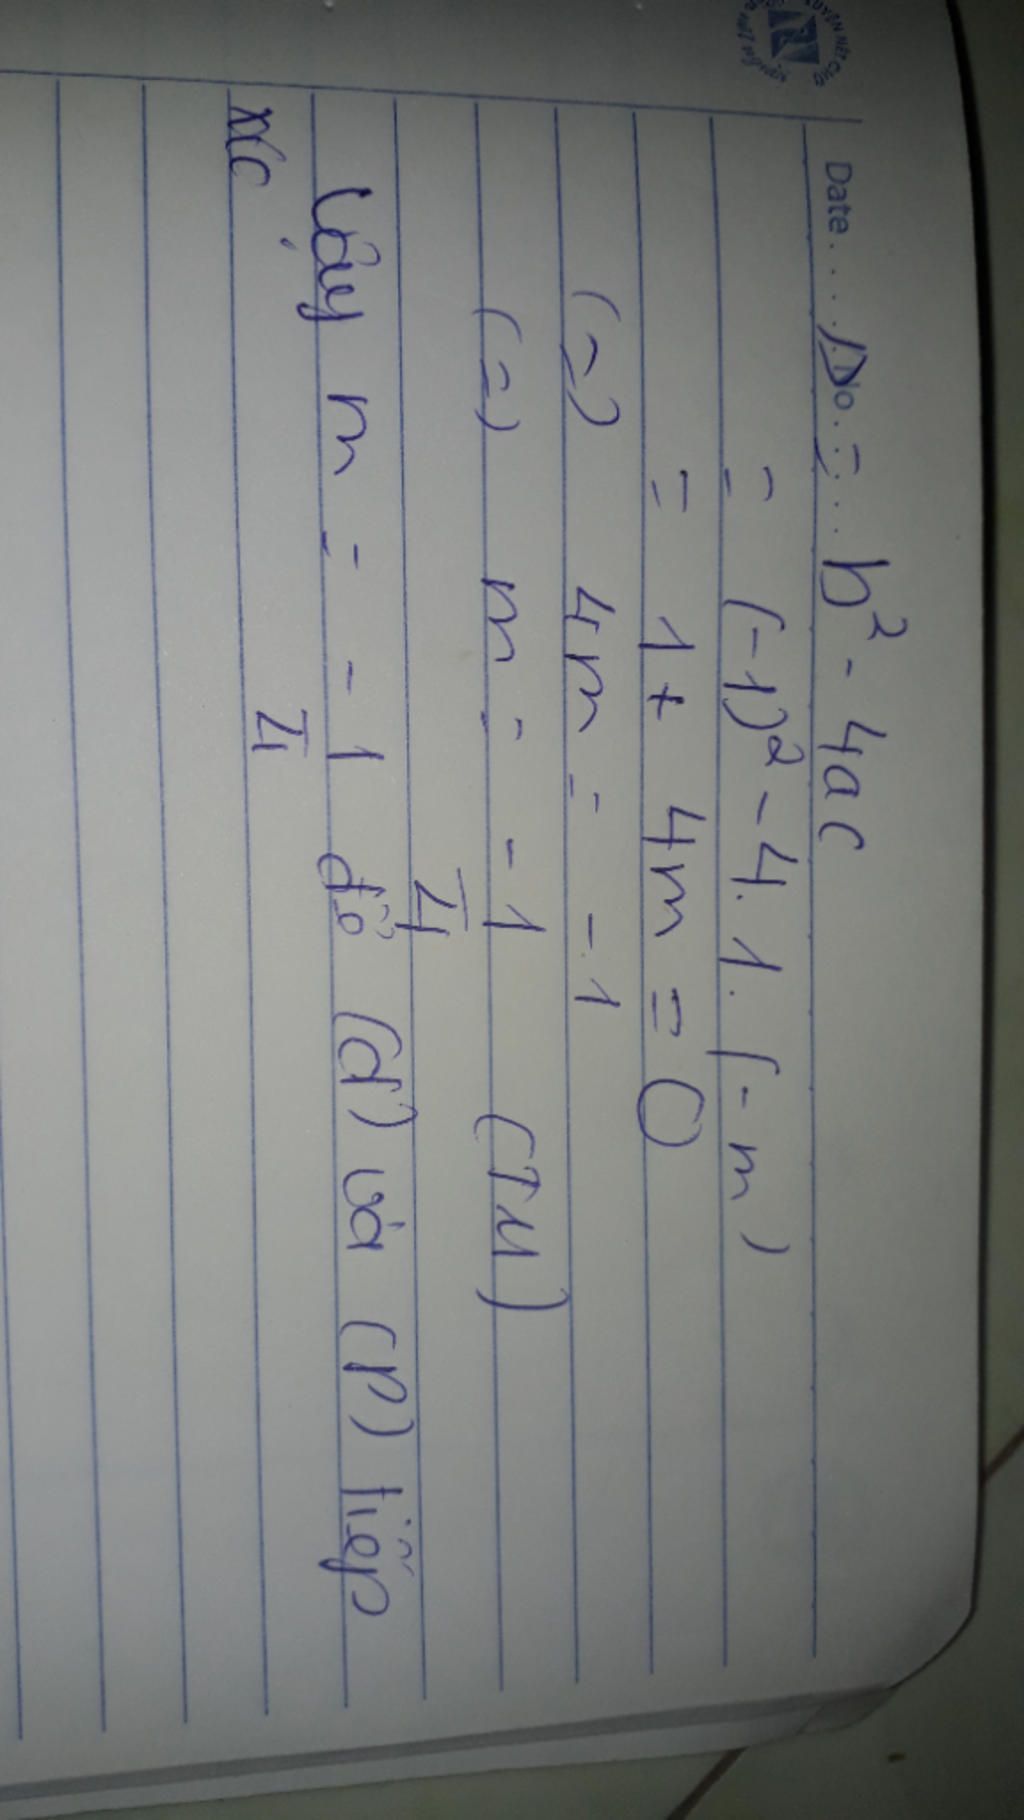 Date....../No. = .... b² - 4ac
= (-1)² - 4.1.(-m)
= 1 + 4m = 0
(=) 4m = -1
(=) m = -1/4 (TM)
Vậy m = -1/4 để (d) và (P) tiếp
xúc